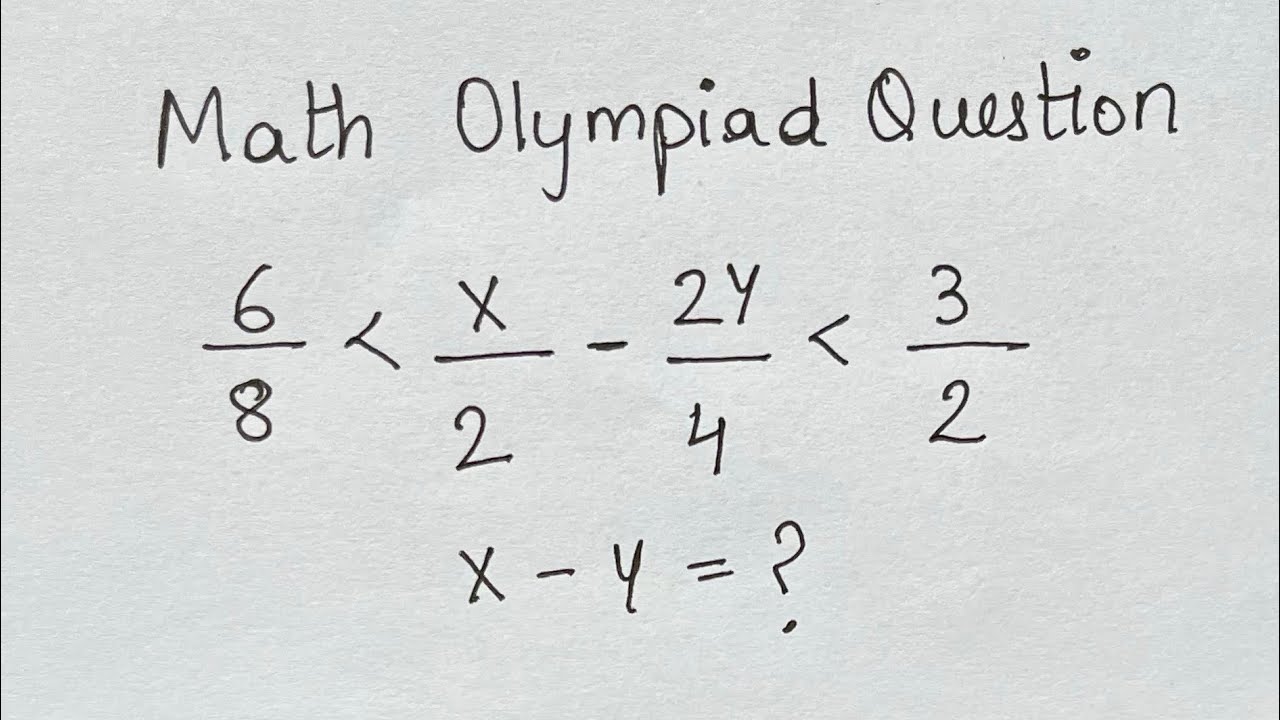 Math Olympiad Question
6/8 < x/2 - 2y/4 < 3/2
x - y = ?